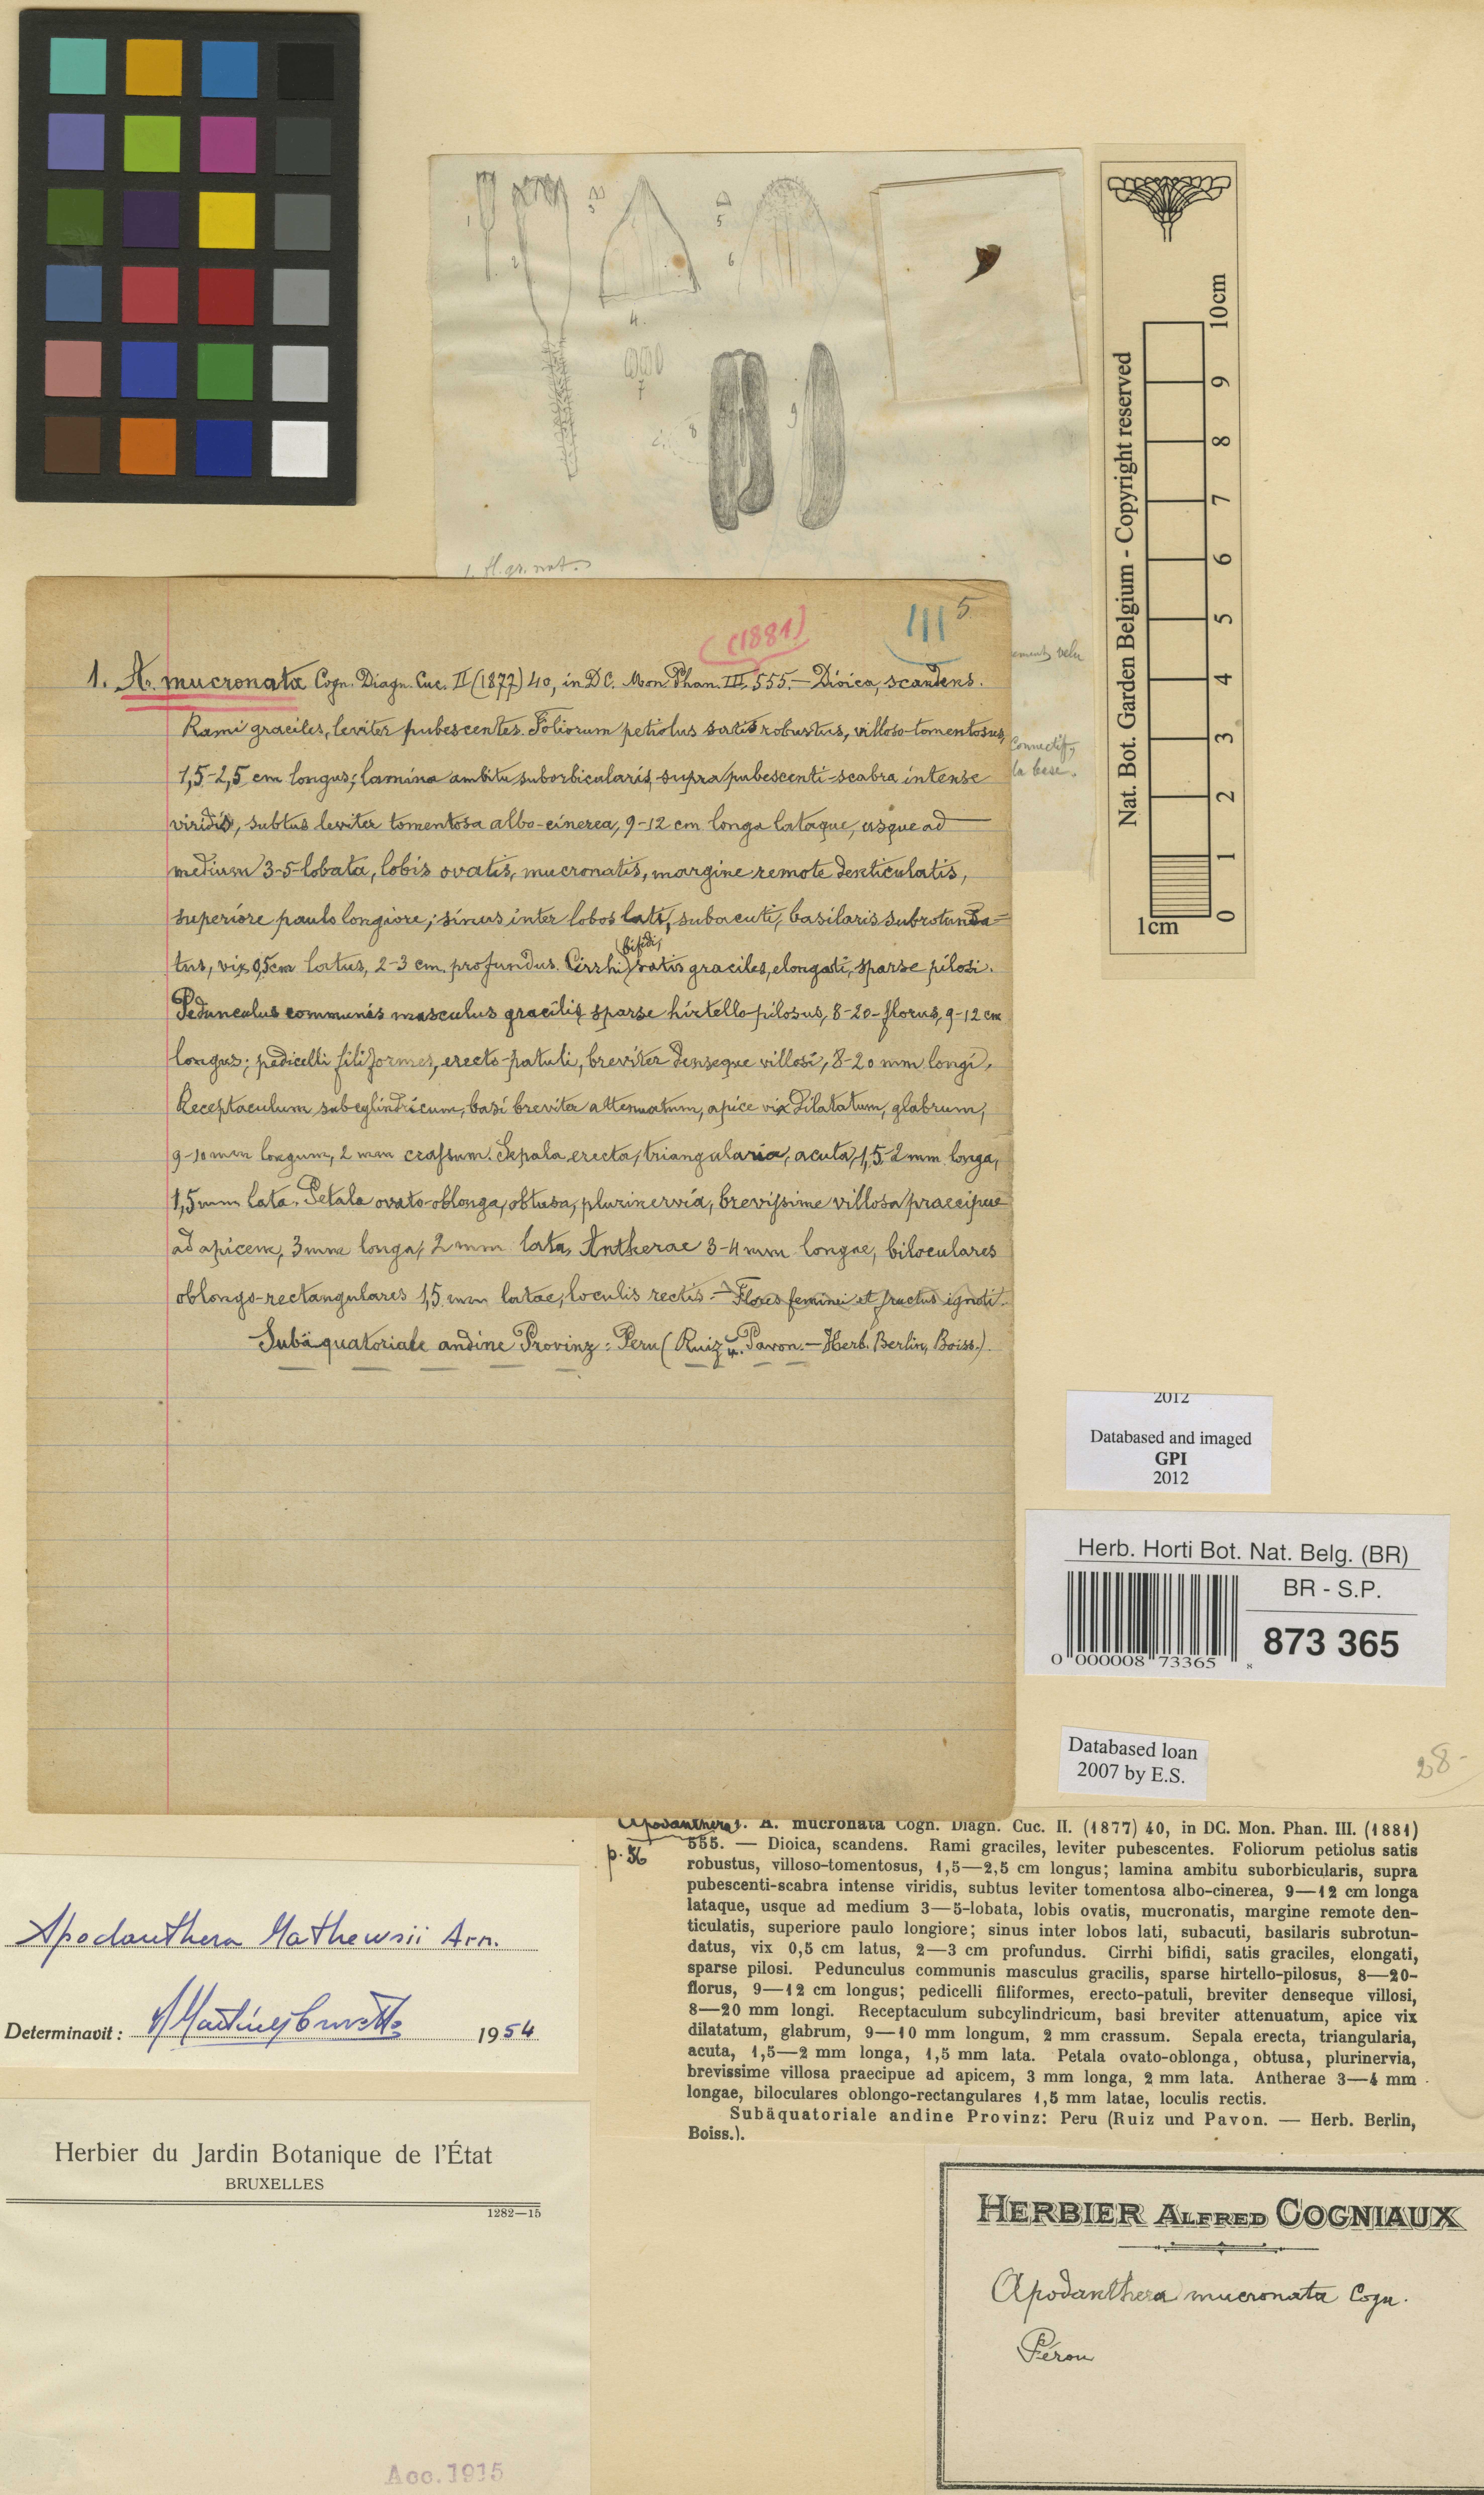 1
2
3
4.
5
6
7
8
9
1. fl. gr. nat.
Nat. Bot. Garden Belgium - Copyright reserved
10cm
9
8
7
6
5
4
3
2
1
0
1cm
(1881)
III 5
velu
Connectif,
la base.
1. A. mucronata Cogn. Diagn. Cuc. II (1877) 40, in DC. Mon. Phan. III. 555. — Dioica, scandens.
Rami graciles, leviter pubescentes. Foliorum petiolus satis robustus, villoso-tomentosus,
1,5-2,5 cm longus; lamina ambitu suborbicularis, supra pubescenti-scabra intense
viridis, subtus leviter tomentosa albo-cinerea, 9-12 cm longa lataque, usque ad
medium 3-5-lobata, lobis ovatis, mucronatis, margine remote denticulatis,
superiore paulo longiore; sinus inter lobos lati, subacuti, basilaris subrotunda=
tus, vix 0,5cm latus, 2-3 cm profundus. Cirrhi (bifidi, satis graciles, elongati, sparse pilosi.
Pedunculus communis masculus gracilis, sparse hirtello-pilosus, 8-20-florus, 9-12 cm
longus; pedicelli filiformes, erecto-patuli, breviter denseque villosi, 8-20 mm longi.
Receptaculum subcylindricum, basi breviter attenuatum, apice vix dilatatum, glabrum,
9-10 mm longum, 2 mm crassum. Sepala erecta, triangularia, acuta, 1,5-2 mm longa,
1,5 mm lata. Petala ovato-oblonga, obtusa, plurinervia, brevissime villosa praecipue
ad apicem, 3 mm longa, 2 mm lata. Antherae 3-4 mm longae, biloculares
oblongo-rectangulares 1,5 mm latae, loculis rectis. — Flores feminei et fructus ignoti.
Subäquatoriale andine Provinz: Peru (Ruiz u. Pavon. — Herb. Berlin, Boiss.).
2012
Databased and imaged
GPI
2012
Herb. Horti Bot. Nat. Belg. (BR)
BR - S.P.
873 365
0 000008 73365 8
Databased loan
2007 by E.S.
28-
Apodanthera
p. 56
1. A. mucronata Cogn. Diagn. Cuc. II. (1877) 40, in DC. Mon. Phan. III. (1881)
555. — Dioica, scandens. Rami graciles, leviter pubescentes. Foliorum petiolus satis
robustus, villoso-tomentosus, 1,5—2,5 cm longus; lamina ambitu suborbicularis, supra
pubescenti-scabra intense viridis, subtus leviter tomentosa albo-cinerea, 9—12 cm longa
lataque, usque ad medium 3—5-lobata, lobis ovatis, mucronatis, margine remote den-
ticulatis, superiore paulo longiore; sinus inter lobos lati, subacuti, basilaris subrotun-
datus, vix 0,5 cm latus, 2—3 cm profundus. Cirrhi bifidi, satis graciles, elongati,
sparse pilosi. Pedunculus communis masculus gracilis, sparse hirtello-pilosus, 8—20-
florus, 9—12 cm longus; pedicelli filiformes, erecto-patuli, breviter denseque villosi,
8—20 mm longi. Receptaculum subcylindricum, basi breviter attenuatum, apice vix
dilatatum, glabrum, 9—10 mm longum, 2 mm crassum. Sepala erecta, triangularia,
acuta, 1,5—2 mm longa, 1,5 mm lata. Petala ovato-oblonga, obtusa, plurinervia,
brevissime villosa praecipue ad apicem, 3 mm longa, 2 mm lata. Antherae 3—4 mm
longae, biloculares oblongo-rectangulares 1,5 mm latae, loculis rectis.
Subäquatoriale andine Provinz: Peru (Ruiz und Pavon. — Herb. Berlin,
Boiss.).
Apodanthera Mathewsii Arn.
Determinavit: 1954
Herbier du Jardin Botanique de l'État
BRUXELLES
1282—15
Acc. 1915
HERBIER ALFRED COGNIAUX
Apodanthera mucronata Cogn.
Pérou